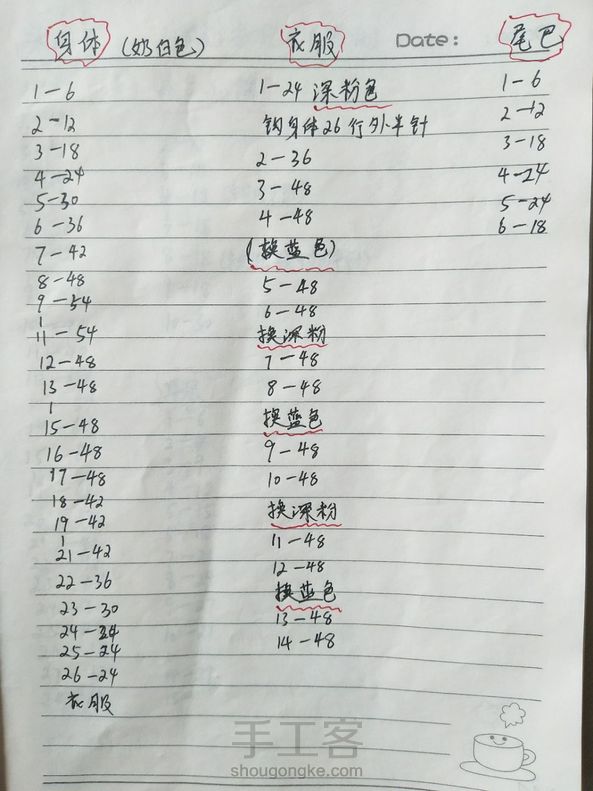 身体 (奶白色)
1-6
2-12
3-18
4-24
5-30
6-36
7-42
8-48
9-54
|
11-54
12-48
13-48
|
15-48
16-48
17-48
18-42
19-42
|
21-42
22-36
23-30
24-24
25-24
26-24
衣服
衣服
1-24 深粉色
钩身体26行外半针
2-36
3-48
4-48
(换蓝色)
5-48
6-48
换深粉
7-48
8-48
换蓝色
9-48
10-48
换深粉
11-48
12-48
换蓝色
13-48
14-48
Date:
尾巴
1-6
2-12
3-18
4-24
5-24
6-18
手工客
shougongke.com